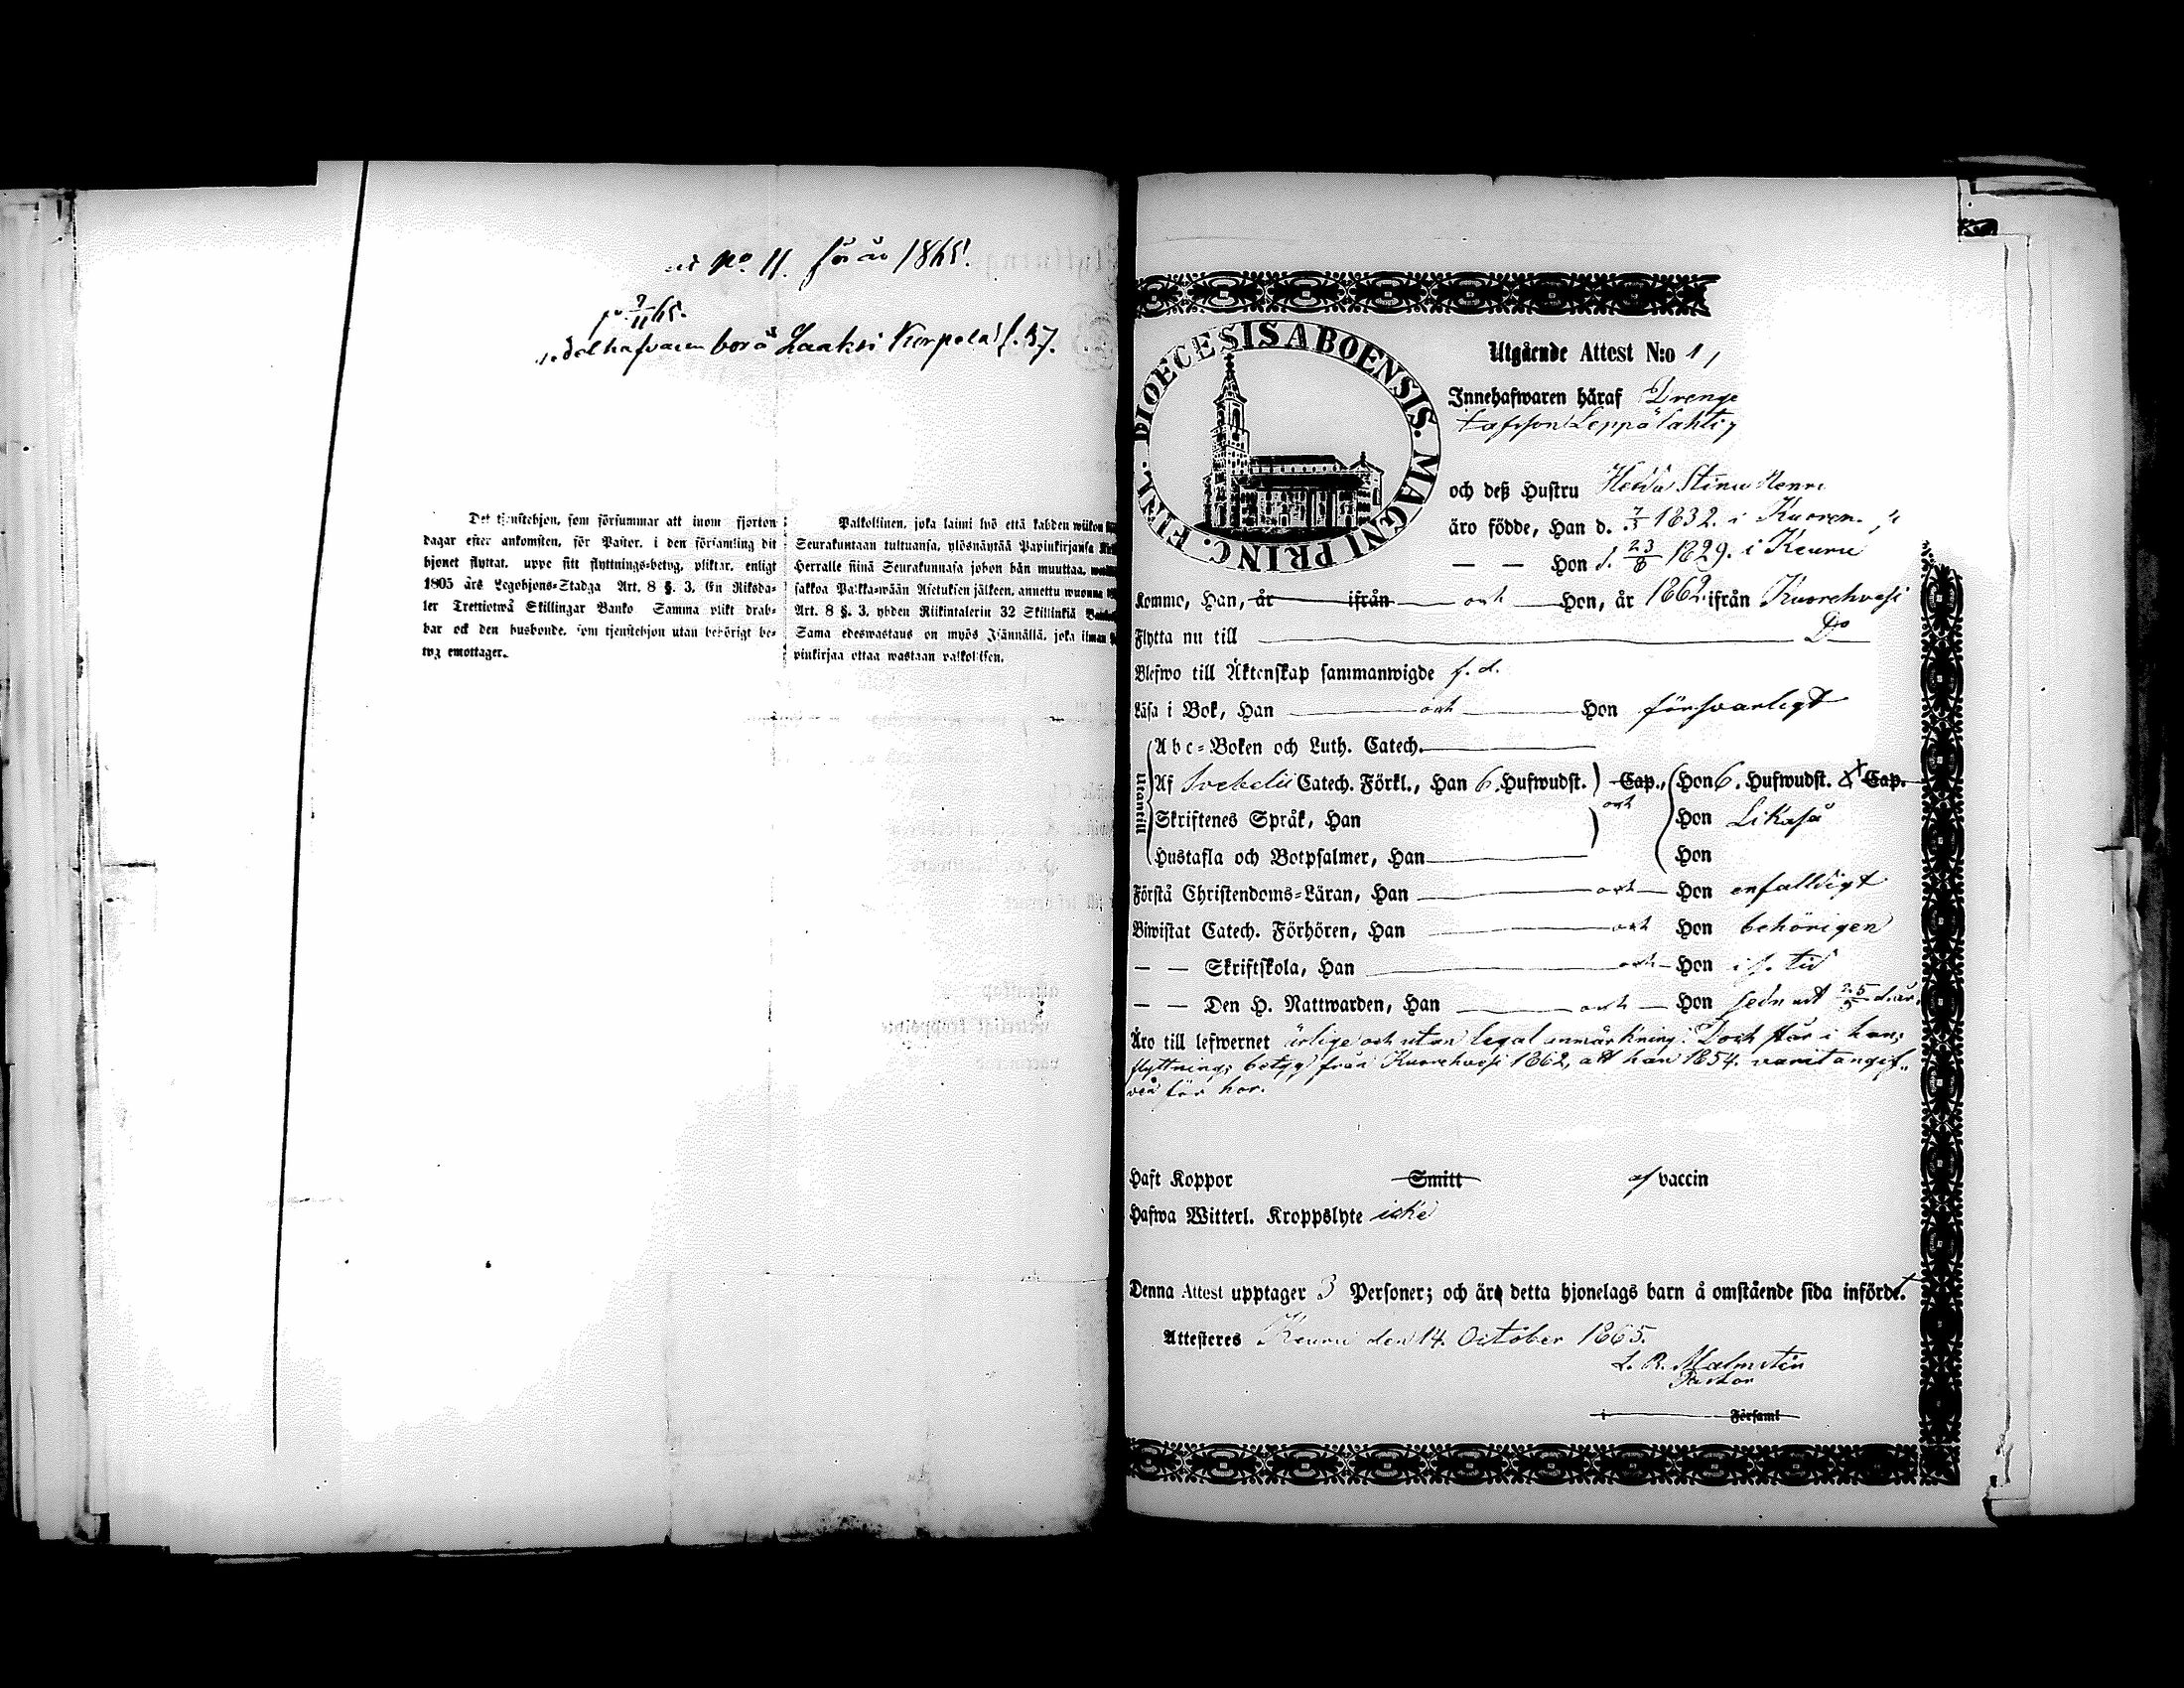 No. 11. för år 1865.
7/11 65.
sedelhafvaren bor å Laaksi Kerpola f. 37.
Det tjenstehjon, som försummar att inom fjorton
dagar efter ankomsten, för Pastor, i den församling dit
hjonet flyttat, uppe sitt flyttnings-betyg, pliktar, enligt
1805 års Legohjons-Stadga Art. 8 §. 3, En Riksda-
ler Trettiotwå Skillingar Banko Samma plikt drab-
bar ock den husbonde, som tjenstehjon utan behörigt be-
tyg emottager.
Palkollinen, joka laimi lyö että kahden wiikon
Seurakuntaan tultuansa, ylösnäyttää Papinkirjansa
Herralle siinä Seurakunnasa johon hän muuttaa,
sakkoa Palkka-wään Asetuksen jälkeen, annettu wuonna
Art. 8 §. 3, yhden Riikintalerin 32 Skillinkiä
Sama edeswastaus on myös Isännällä, joka ilman
pinkirjaa ottaa wastaan palkollisen.
DIOECESIS ABOENSIS. MAGNI PRINC. FINL.
Utgående Attest N:o 11
Innehafwaren häraf Drenge
tafsson Leppälahti,
och deß Hustru Hedda Stina Henri
äro födde, Han d. 7/3 1832. i Kuoreh.
— — Hon d. 23/8 1829. i Keuru
Komme, Han, år ifrån och Hon, år 1862 ifrån Kuorehvesi
Flytta nu till Do
Blefwo till Äktenskap sammanwigde f. d.
Läsa i Bok, Han och Hon försvarligt
Utantill
Abc-Boken och Luth. Catech.
Af Svebelii Catech. Förkl., Han 6. Hufwudst. Cap., Hon 6. Hufwudst. Cap.
och
Skriftenes Språk, Han Hon Likaså
Hustafla och Botpsalmer, Han Hon
Förstå Christendoms-Läran, Han och Hon enfalldigt
Biwistat Catech. Förhören, Han och Hon behörigen
— — Skriftskola, Han och Hon i s. tid
— — Den H. Nattwarden, Han och Hon sedn. ut 25/5 d. år.
Äro till lefwernet ärlige och utan legal anmärkning. Dock står i hans
flyttnings betyg från Kuorehvesi 1862, att han 1854. varit angif-
ven för hor.
Haft Koppor Smitt af vaccin
Hafwa Witterl. Kroppslyte icke
Denna Attest upptager 3 Personer; och äro detta hjonelags barn å omstående sida infördt.
Attesteres Keuru den 14. October 1865.
L. R. Malmstén
Pastor
i Församl